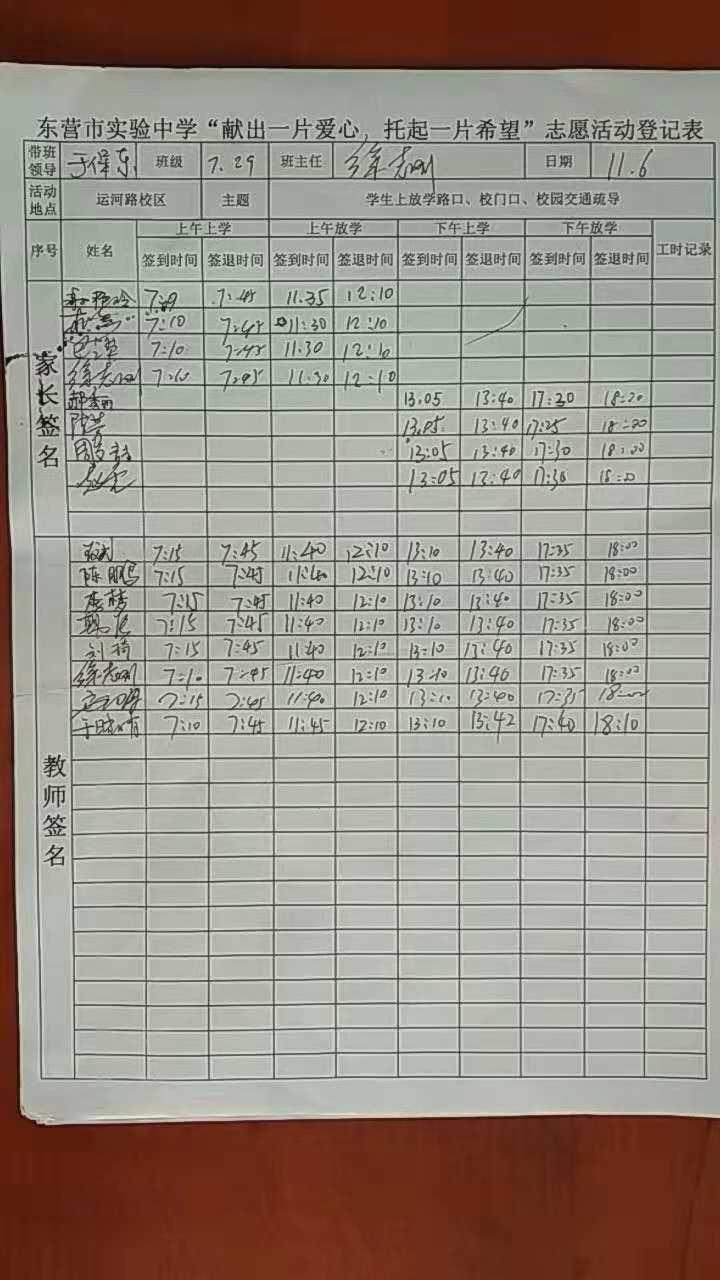 东营市实验中学“献出一片爱心,托起一片希望”志愿活动登记表
带班领导 于保东 班级 7.29 班主任 徐志刚 日期 11.6
活动地点 运河路校区 主题 学生上放学路口、校门口、校园交通疏导
序号 姓名 上午上学 上午放学 下午上学 下午放学 工时记录
签到时间 签退时间 签到时间 签退时间 签到时间 签退时间 签到时间 签退时间
家长签名
7:45 11.35 12:10
7:10 7:45 11:30 12:10
7:10 7:45 11:30 12:10
徐志刚 7:10 7:45 11:30 12:10
13.05 13:40 17:30 18:20
13.05 13:40 17:25 18:00
13:05 13:40 17:30 18:00
13:05 13:40 17:30 18:00
教师签名
7:15 7:45 11:40 12:10 13:10 13:40 17:35 18:00
陈鹏 7:15 7:45 11:40 12:10 13:10 13:40 17:35 18:00
7:15 7:45 11:40 12:10 13:10 13:40 17:35 18:00
7:15 7:45 11:40 12:10 13:10 13:40 17:35 18:00
刘琦 7:15 7:45 11:40 12:10 13:10 13:40 17:35 18:00
徐志刚 7:10 7:45 11:40 12:10 13:10 13:40 17:35 18:00
7:15 7:45 11:40 12:10 13:10 13:40 17:35 18:00
7:10 7:45 11:45 12:10 13:10 13:42 17:40 18:10